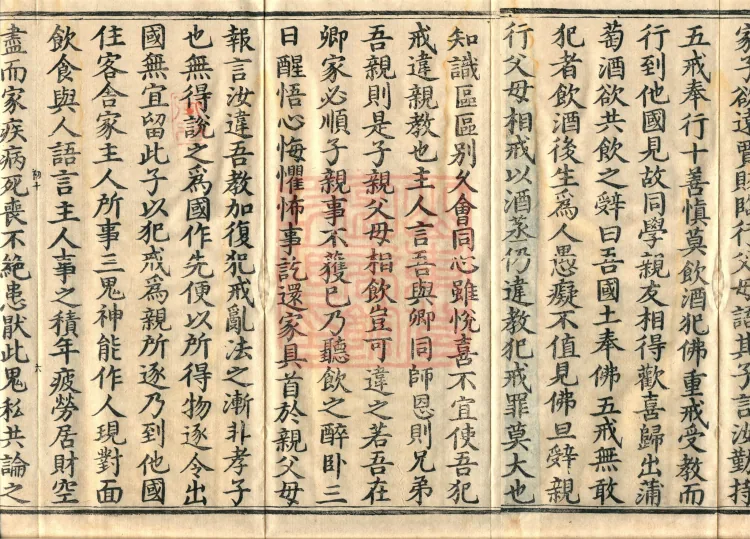 家子欲遠賈財臨行父母語其子言汝勤持
五戒奉行十善慎莫飲酒犯佛重戒受教而
行到他國見故同學親友相得歡喜歸出蒲
萄酒欲共飲之辝曰吾國土奉佛五戒無敢
犯者飲酒後生爲人愚癡不值見佛且辝親
行父母相戒以酒蒸仍違教犯戒罪莫大也
知識區區別久會同心雖悅喜不宜使吾犯
戒違親教也主人言吾與卿同師恩則兄弟
吾親則是子親父母相飲豈可違之若吾在
卿家必順子親事不獲已乃聽飲之醉卧三
日醒悟心悔懼怖事訖還家具首於親父母
報言汝違吾教加復犯戒亂法之漸非孝子
也無得說之爲國作先便以所得物逐令出
國無宜留此子以犯戒爲親所逐乃到他國
住客舍家主人所事三鬼神能作人現對面
飲食與人語言主人事之積年疲勞居財空
盡而家疾病死喪不絶患猒此鬼私共論之
初十
六